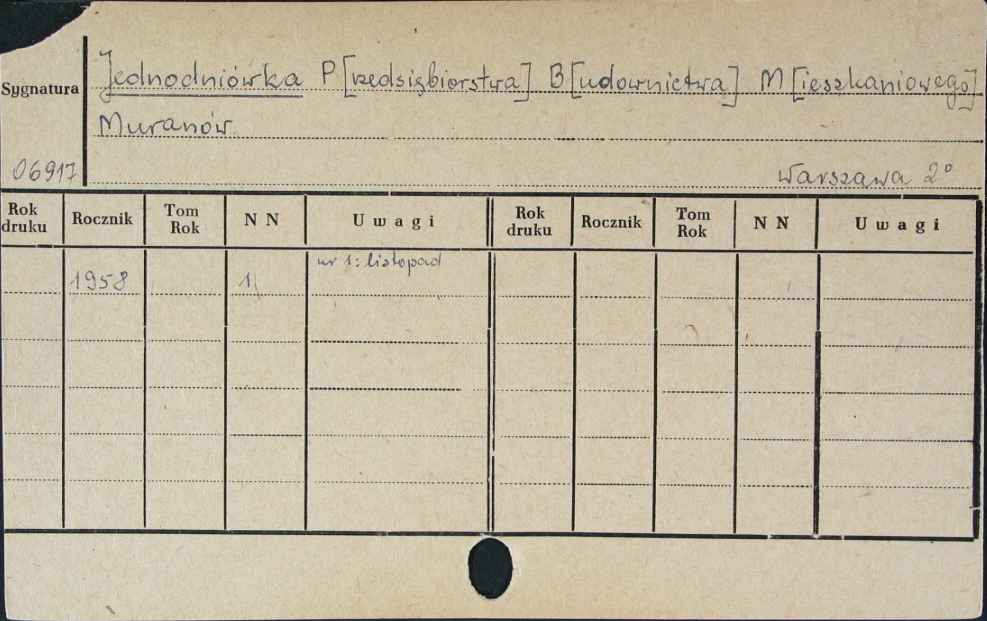 Jednodniówka P[rzedsiębiorstwa] B[udownictwa] M[ieszkaniowego]
Sygnatura
Muranów
06917
Warszawa 2°
Rok druku Rocznik Tom Rok N N Uwagi Rok druku Rocznik Tom Rok N N Uwagi
1958 1 nr 1: listopad